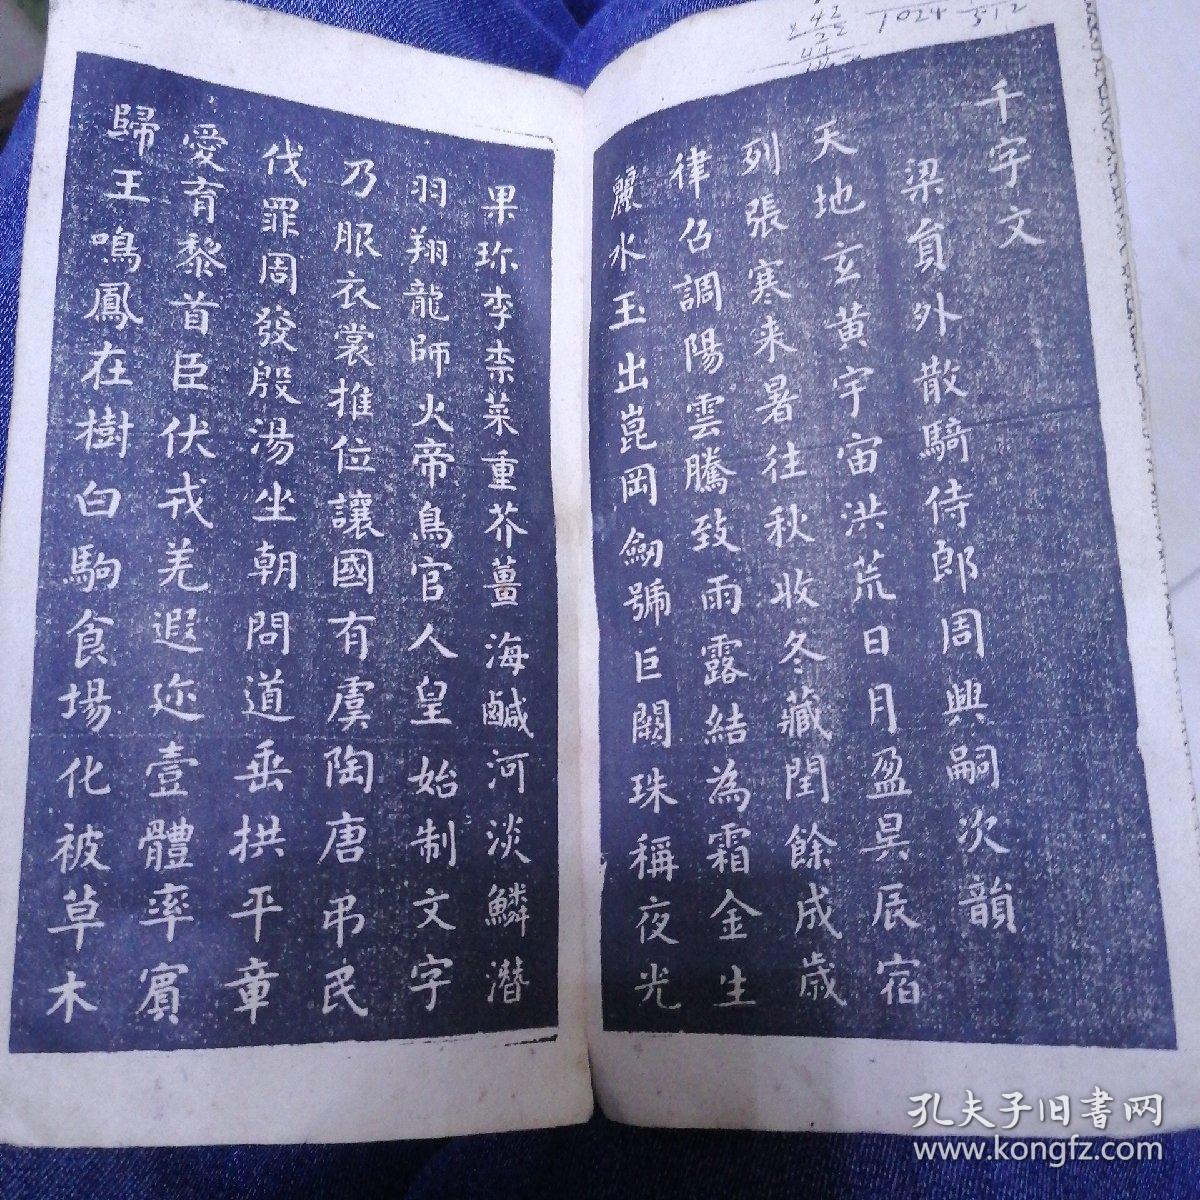 千字文
梁貟外散騎侍郎周興嗣次韻
天地玄黄宇宙洪荒日月盈昃辰宿
列張寒来暑往秋收冬藏閏餘成歲
律吕調陽雲騰致雨露結為霜金生
麗水玉出崑岡劒號巨闕珠稱夜光
果珎李柰菜重芥薑海鹹河淡鱗潛
羽翔龍師火帝鳥官人皇始制文字
乃服衣裳推位讓國有虞陶唐弔民
伐罪周發殷湯坐朝問道垂拱平章
愛育黎首臣伏戎羌遐迩壹體率賓
歸王鳴鳳在樹白駒食場化被草木
1024
512
孔夫子旧書网
www.kongfz.com